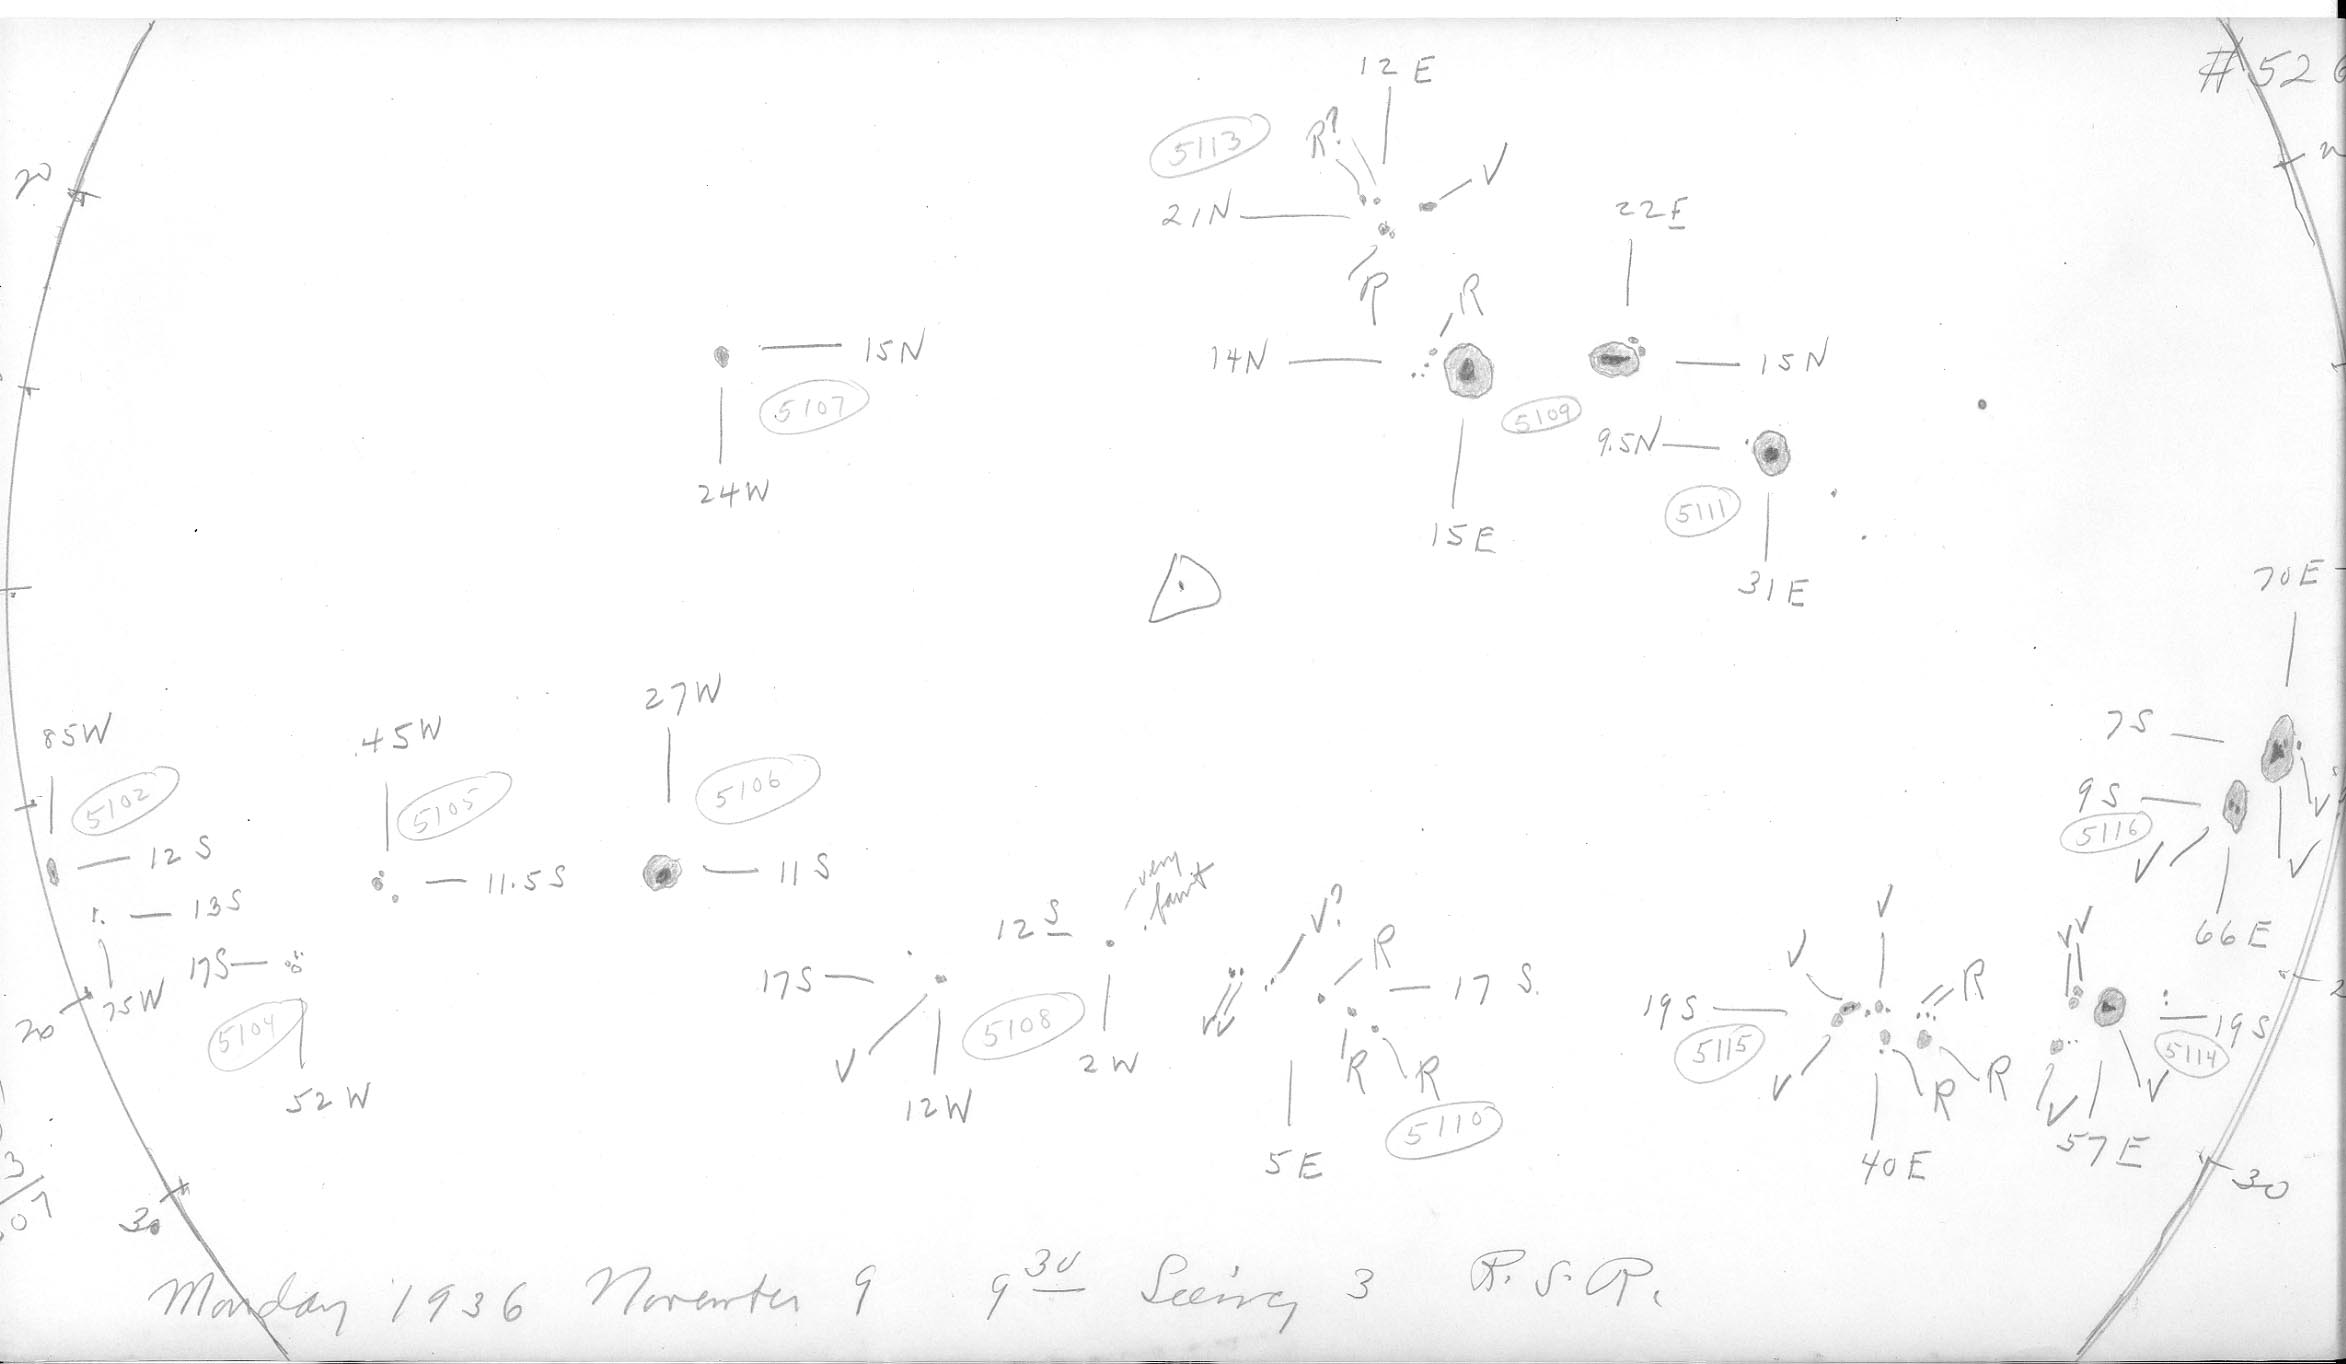 12 E
#526
5113
R?
V
20
21N
22E
R
R
14N
15N
15N
5107
5109
9.5N
24W
5111
15E
31E
70E
27W
7S
85W
45W
V
5102
5105
5106
9S
5116
V
V
12S
11.5S
11S
very
faint
13S
12S
V?
V
VV
66E
17S
R
V
75W
17S
17S
R
20
5104
VV
19S
19S
5108
5115
5114
V
2W
R
R
V
R
R
V
V
52W
12W
5110
57E
5E
40E
30
30
Monday 1936 November 9 9 30 Seeing 3 R.S.R.